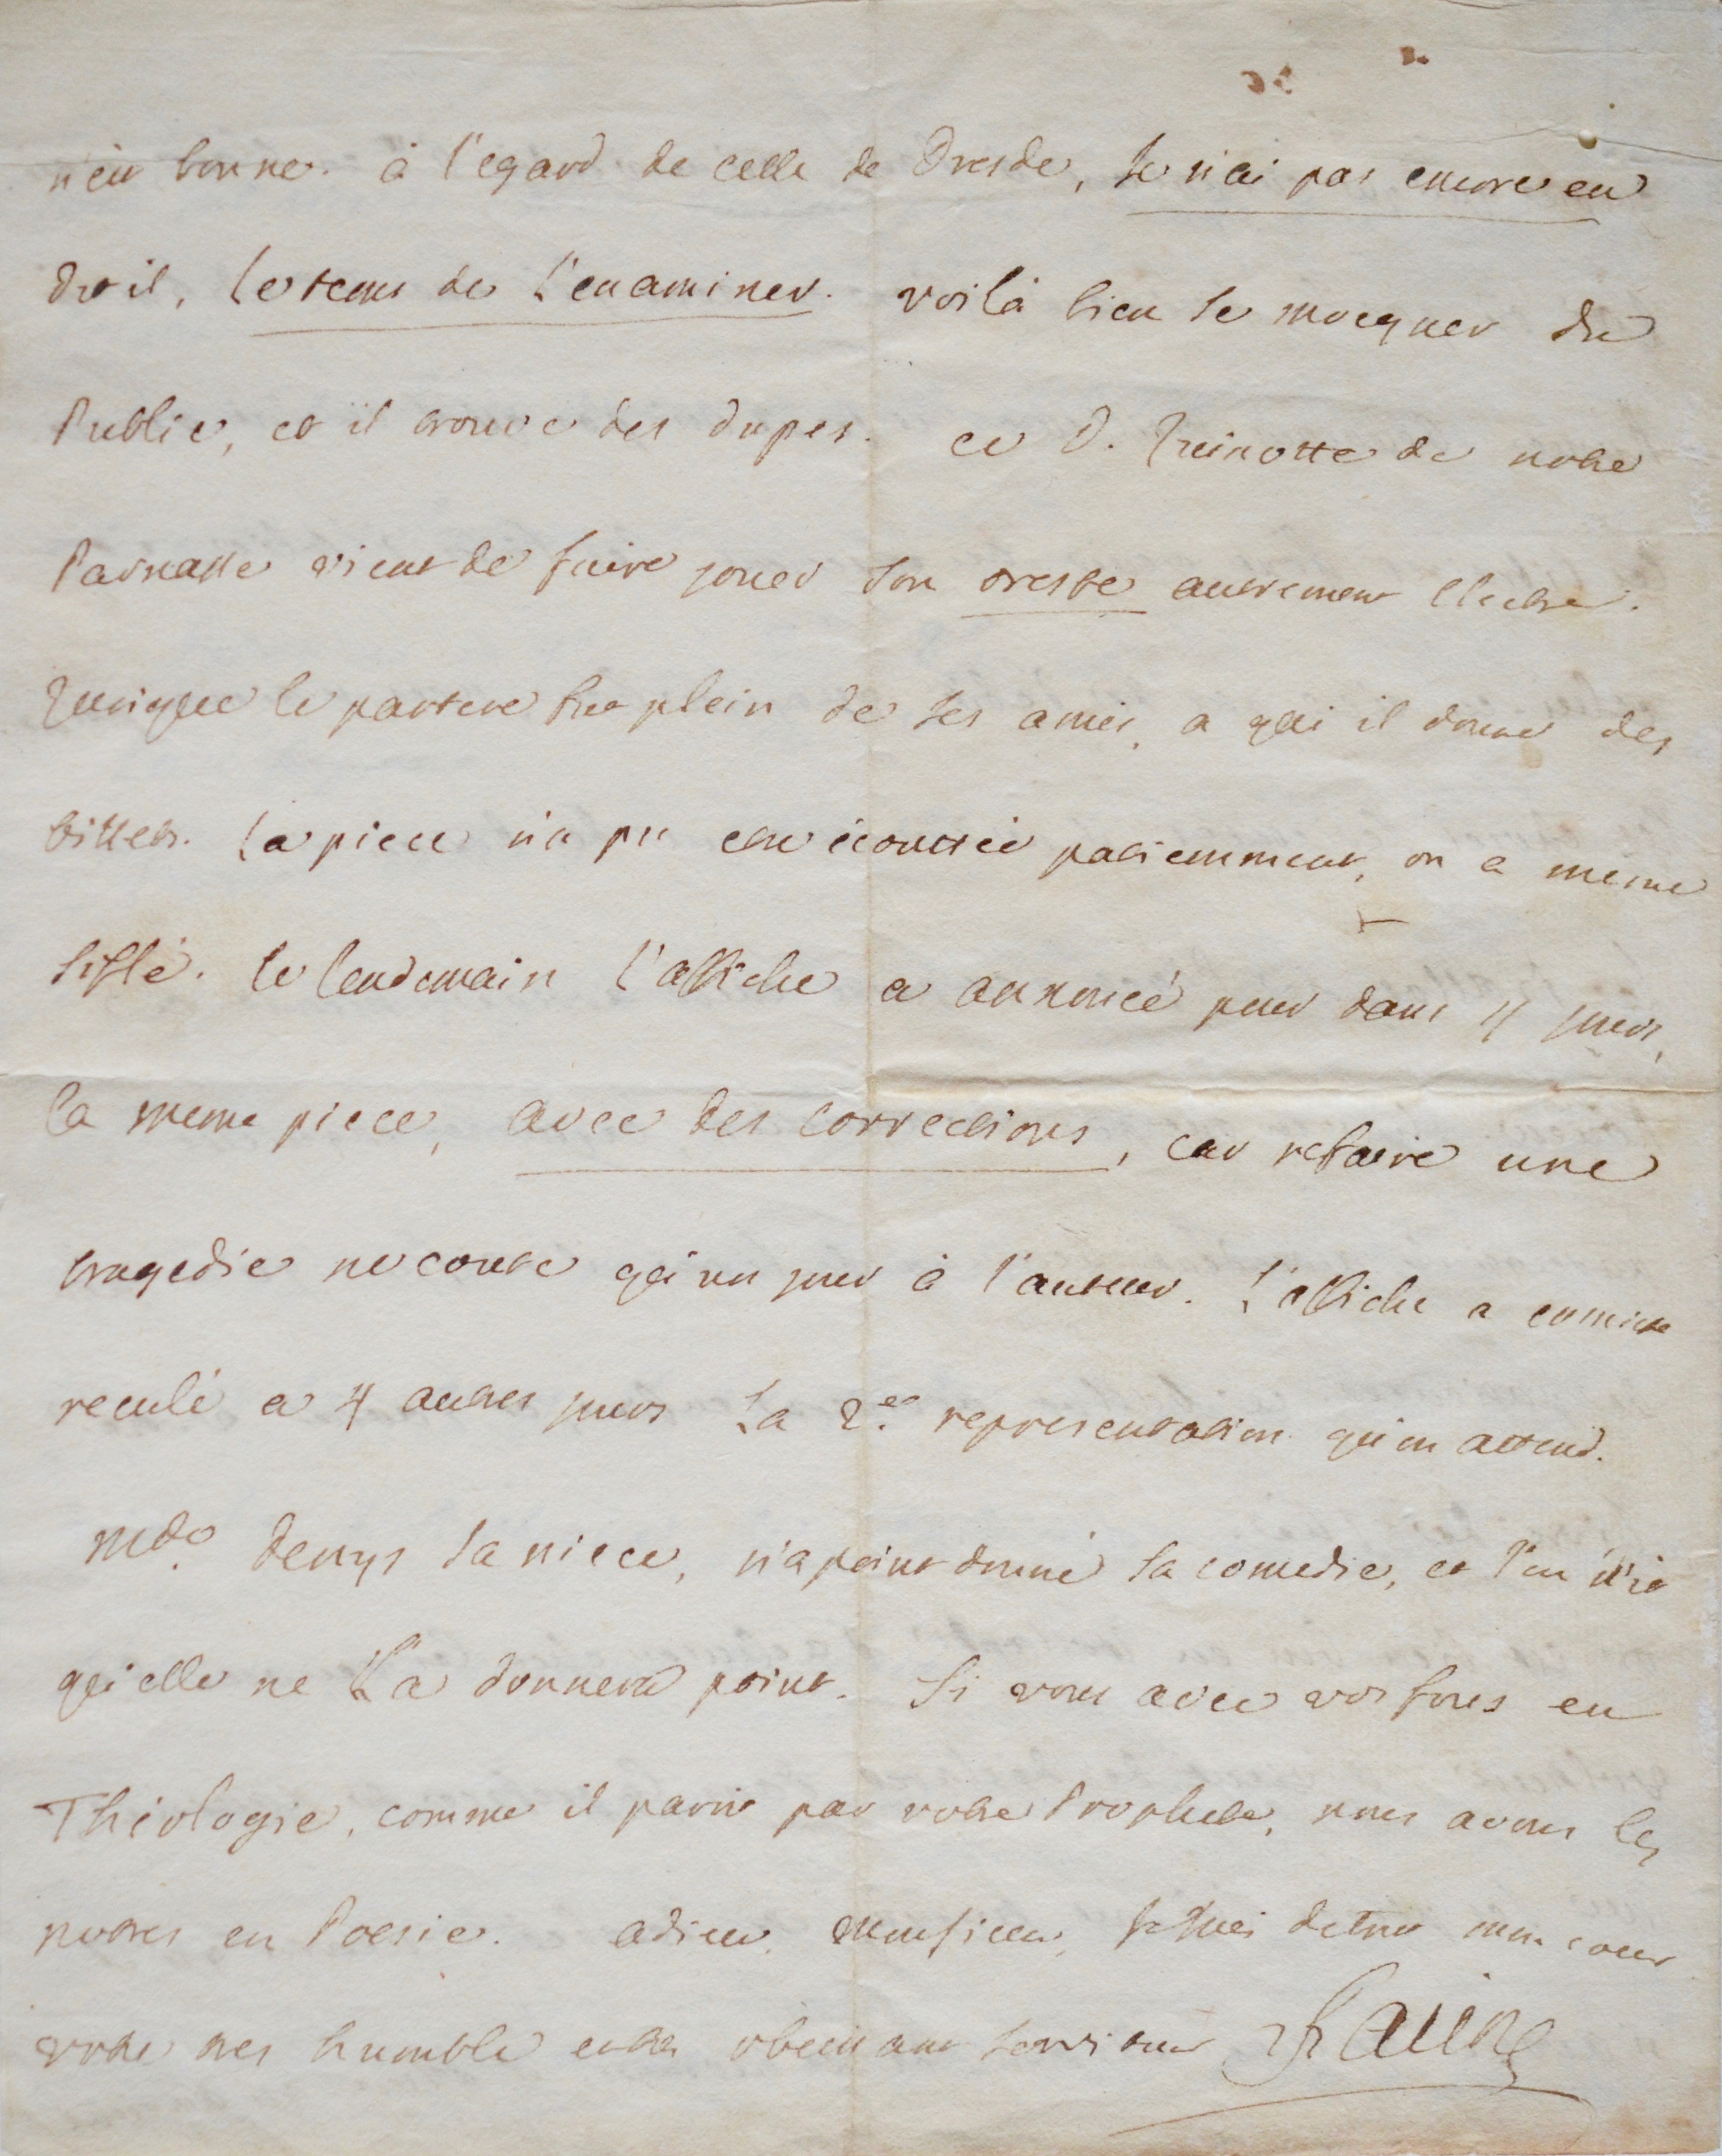 n'est bonne. à l'egard de celle de Dresde, Je n'ai pas encore eu
dit il, le tems de l'examiner. voilà bien se mocquer du
Public, et il trouve des dupes. ce D. Quixotte de notre
Parnasse vient de faire jouer son oreste autrement Electre.
Quoique le partere fut plein de ses amis, a qui il donne des
billets. La piece n'a pu etre écoutée patiemment, on a meme
siflé. le lendemain l'affiche a annoncé pour dans 4 jours,
la meme piece, avec des corrections, car refaire une
tragedie ne coute qu'un jour à l'auteur. L'affiche a ensuite
reculé a 4 autres jours La 2.e representation qu'on attend.
Mde. denys sa niece, n'a point donné sa comedie, et l'on dit
qu'elle ne la donnera point. Si vous avez vos fous en
Théologie, comme il paroit par votre Prophete, nous avons les
notres en Poesie. adieu, Monsieur, Je suis de tout mon coeur
votre tres humble et tres obeissant serviteur Racine